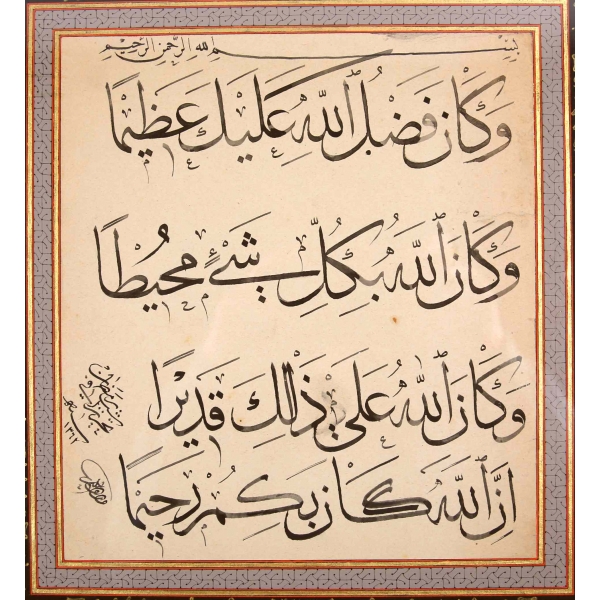 بسم الله الرحمن الرحيم
وَكَانَ فَضْلُ ٱللَّهِ عَلَيْكَ عَظِيمًا
وَكَانَ ٱللَّهُ بِكُلِّ شَيْءٍ مُحِيطًا
وَكَانَ ٱللَّهُ عَلَى ذَٰلِكَ قَدِيرًا
إِنَّ ٱللَّهَ كَانَ بِكُمْ رَحِيمًا